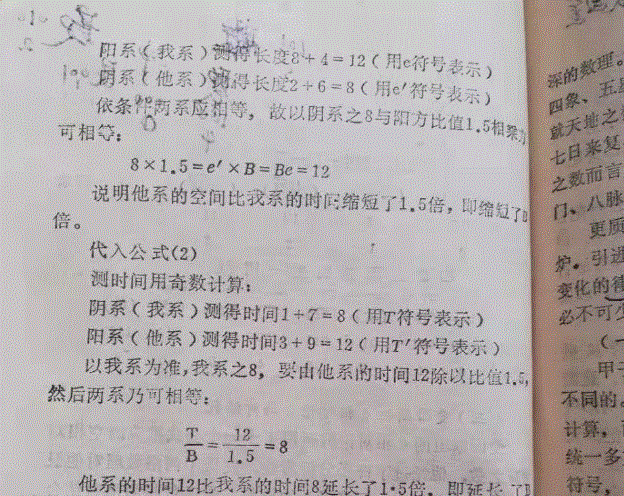 阳系（我系）测得长度8+4=12（用e符号表示）
阴系（他系）测得长度2+6=8（用e′符号表示）
依条件两系应相等，故以阴系之8与阳方比值1.5相乘方
可相等：
8×1.5=e′×B=Be=12
说明他系的空间比我系的时间缩短了1.5倍，即缩短了B
倍。
代入公式(2)
测时间用奇数计算：
阴系（我系）测得时间1+7=8（用T符号表示）
阳系（他系）测得时间3+9=12（用T′符号表示）
以我系为准，我系之8，要由他系的时间12除以比值1.5，
然后两系乃可相等：
T/B=12/1.5=8
他系的时间12比我系的时间8延长了1·5倍，即延长了
深的数理。
四象、五
就天地之
七日来复
之数而言
门、八脉
更质
炉。引进
变化的
必不可
（一
甲
不同的。
计算，
统一多
符号，